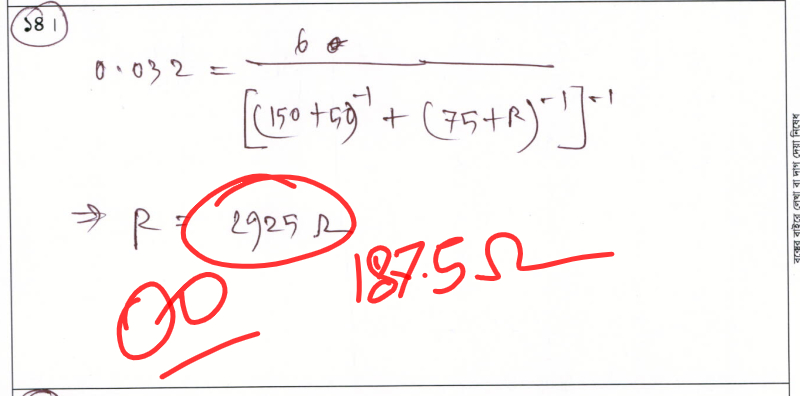 ১৪।
0.032 = 6 / [(150+50)^-1 + (75+R)^-1]^-1
⇒ R = 2925 Ω
187.5 Ω
00
বক্সের বাইরে লেখা বা দাগ দেয়া নিষেধ